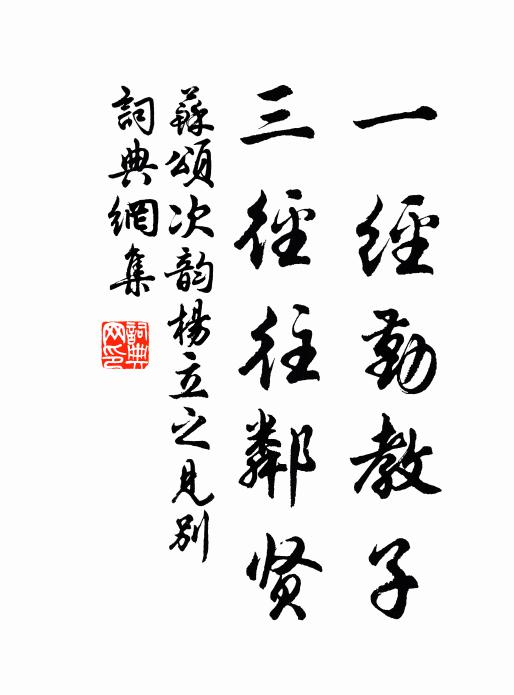 一經勤教子
三徑往鄰贤
蘇頌次韵楊立之見別
詞典網集
詞典网印